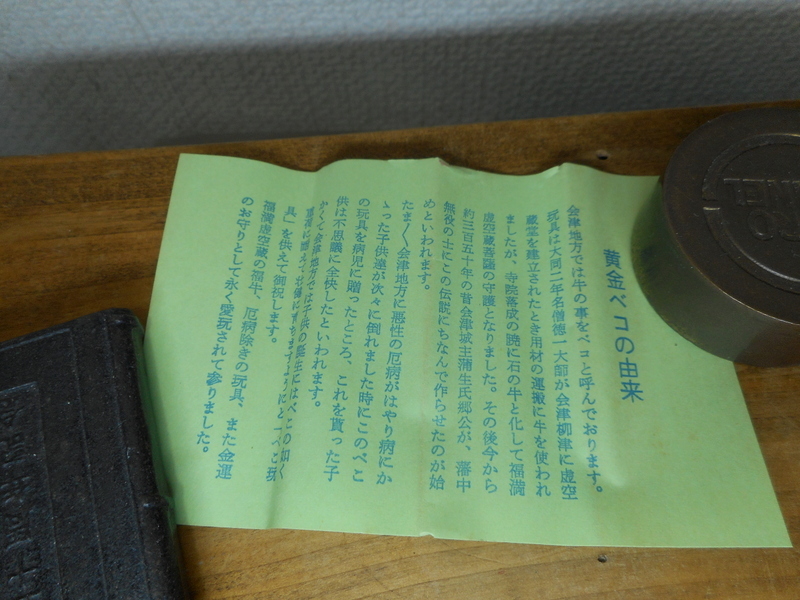 黄金ベコの由来
会津地方では牛の事をベコと呼んでおります。
玩具は大同二年名僧徳一大師が会津柳津に虚空
蔵堂を建立されたとき用材の運搬に牛を使われ
ましたが、寺院落成の暁に石の牛と化して福満
虚空蔵菩薩の守護となりました。その後今から
約三百五十年の昔会津城主蒲生氏郷公が、藩中
無役の士にこの伝説にちなんで作らせたのが始
めといわれます。
たま〱会津地方に悪性の厄病がはやり病にか
ゝった子供達が次々に倒れました時にこのべこ
の玩具を病児に贈ったところ、これを貰った子
供は不思議に全快したといわれます。
かくて会津地方では子供の誕生にはべこの如く
具」を供えて御祝します。
福満虚空蔵の福牛、厄病除きの玩具、また金運
のお守りとして永く愛玩されて参りました。